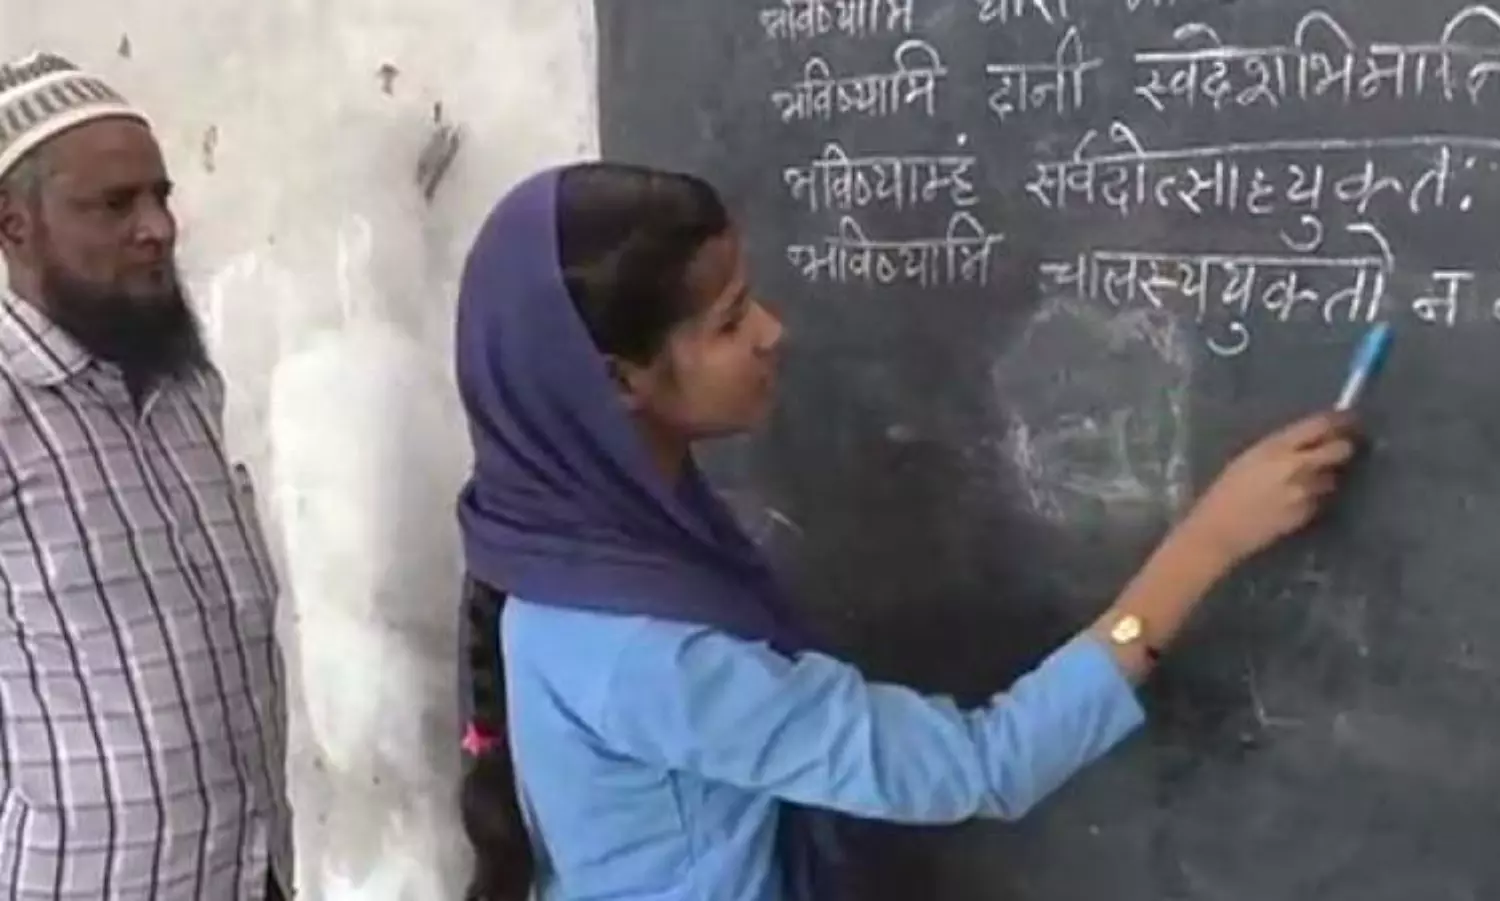 भविष्यामि
भविष्यामि दानी स्वदेशाभिमानि
भविष्याम्हं सर्वदोत्साहयुक्तः
भविष्यामि चालस्ययुक्तो न